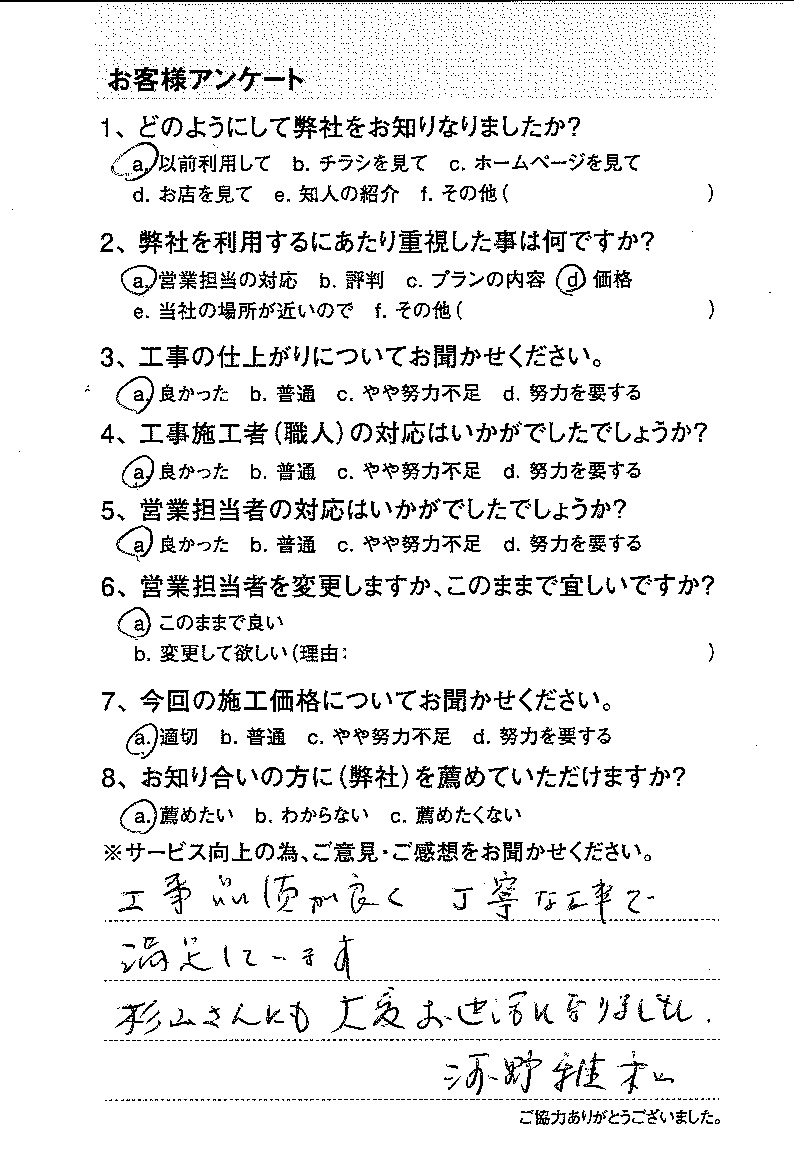 お客様アンケート
1、どのようにして弊社をお知りなりましたか?
a. 以前利用して b. チラシを見て c. ホームページを見て
d. お店を見て e. 知人の紹介 f. その他( )
2、弊社を利用するにあたり重視した事は何ですか?
a. 営業担当の対応 b. 評判 c. プランの内容 d 価格
e. 当社の場所が近いので f. その他( )
3、工事の仕上がりについてお聞かせください。
a. 良かった b. 普通 c. やや努力不足 d. 努力を要する
4、工事施工者(職人)の対応はいかがでしたでしょうか?
a. 良かった b. 普通 c. やや努力不足 d. 努力を要する
5、営業担当者の対応はいかがでしたでしょうか?
a. 良かった b. 普通 c. やや努力不足 d. 努力を要する
6、営業担当者を変更しますか、このままで宜しいですか?
a. このままで良い
b. 変更して欲しい(理由: )
7、今回の施工価格についてお聞かせください。
a. 適切 b. 普通 c. やや努力不足 d. 努力を要する
8、お知り合いの方に(弊社)を薦めていただけますか?
a. 薦めたい b. わからない c. 薦めたくない
※サービス向上の為、ご意見・ご感想をお聞かせください。
工事品質が良く 丁寧な工事で
満足しています
杉山さんにも大変お世話になりました.
河野雅
ご協力ありがとうございました。